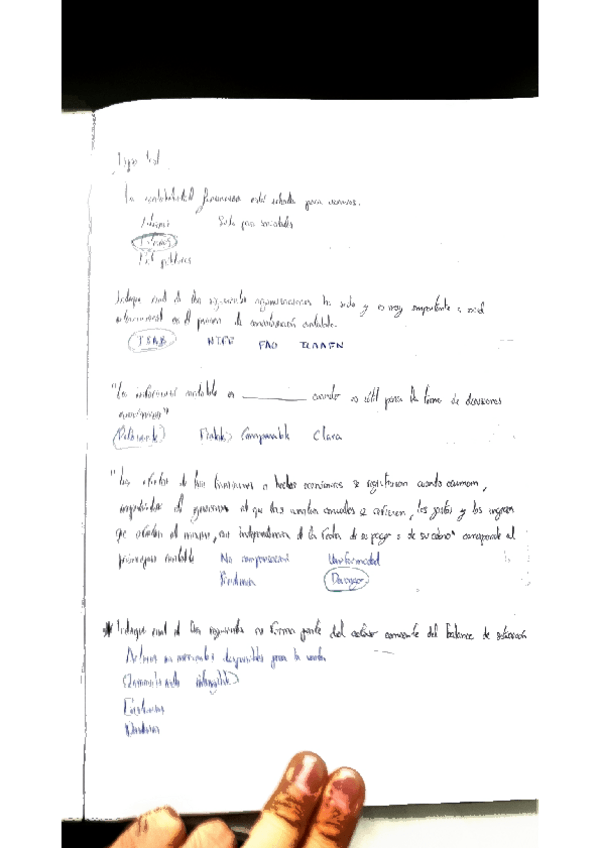 Tipo test
La contabilidad financiera está echada para usuarios.
Internos Solo para sociedades
Externos
públicas
Indique cual de las siguientes organizaciones ha sido y es muy importante a nivel
internacional en el proceso de armonización contable.
IASB NIFF FAO
"La información contable es ________ cuando es útil para la toma de decisiones
económicas"
(Relevante) Fiable Comparable Clara
"Los efectos de las transacciones o hechos económicos se registrarán cuando ocurran,
imputándose al ejercicio al que las cuentas anuales se refieran, los gastos y los ingresos
que afecten al mismo, con independencia de la fecha de su pago o de su cobro" corresponde al
principio contable No compensación Uniformidad
Prudencia Devengo
* Indique cual de las siguientes no forma parte del activo corriente del balance de situación
Activos no corrientes disponibles para la venta
(Inmovilizado intangible)
Existencias